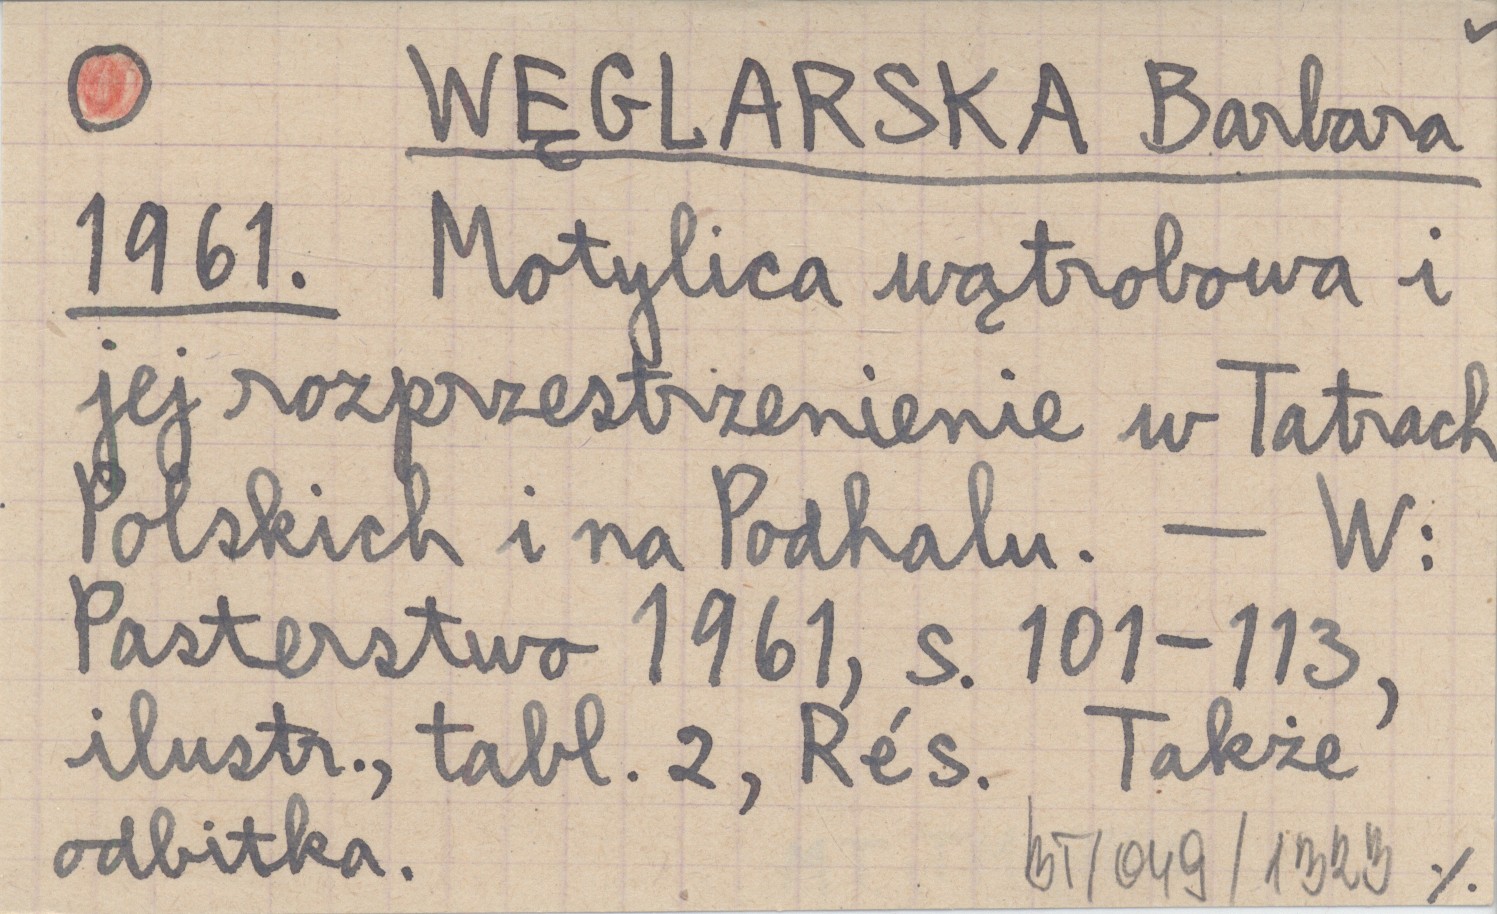 WĘGLARSKA Barbara
1961. Motylica wątrobowa i
jej rozprzestrzenienie w Tatrach
Polskich i na Podhalu. — W:
Pasterstwo 1961, s. 101-113,
ilustr., tabl. 2, Rés. Także
odbitka.
BT/049/1323 ·/.